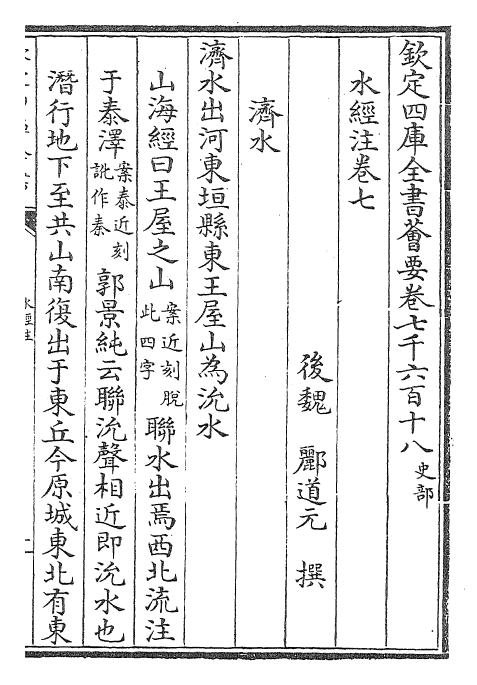 欽定四庫全書薈要卷七千六百十八史部
水經注卷七
後魏 酈道元 撰
濟水
濟水出河東垣縣東王屋山為沇水
山海經曰王屋之山案近刻脫此四字聯水出焉西北流注
于泰澤案泰近刻訛作秦郭景純云聯沇聲相近即沇水也
潛行地下至共山南復出于東丘今原城東北有東